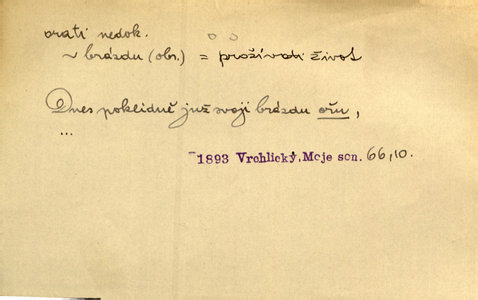 orati nedok.
~ brázdu (obr.) = prožívati život
Dnes poklidně již svoji brázdu ořu,
...
1893 Vrchlický, Moje son. 66,10.